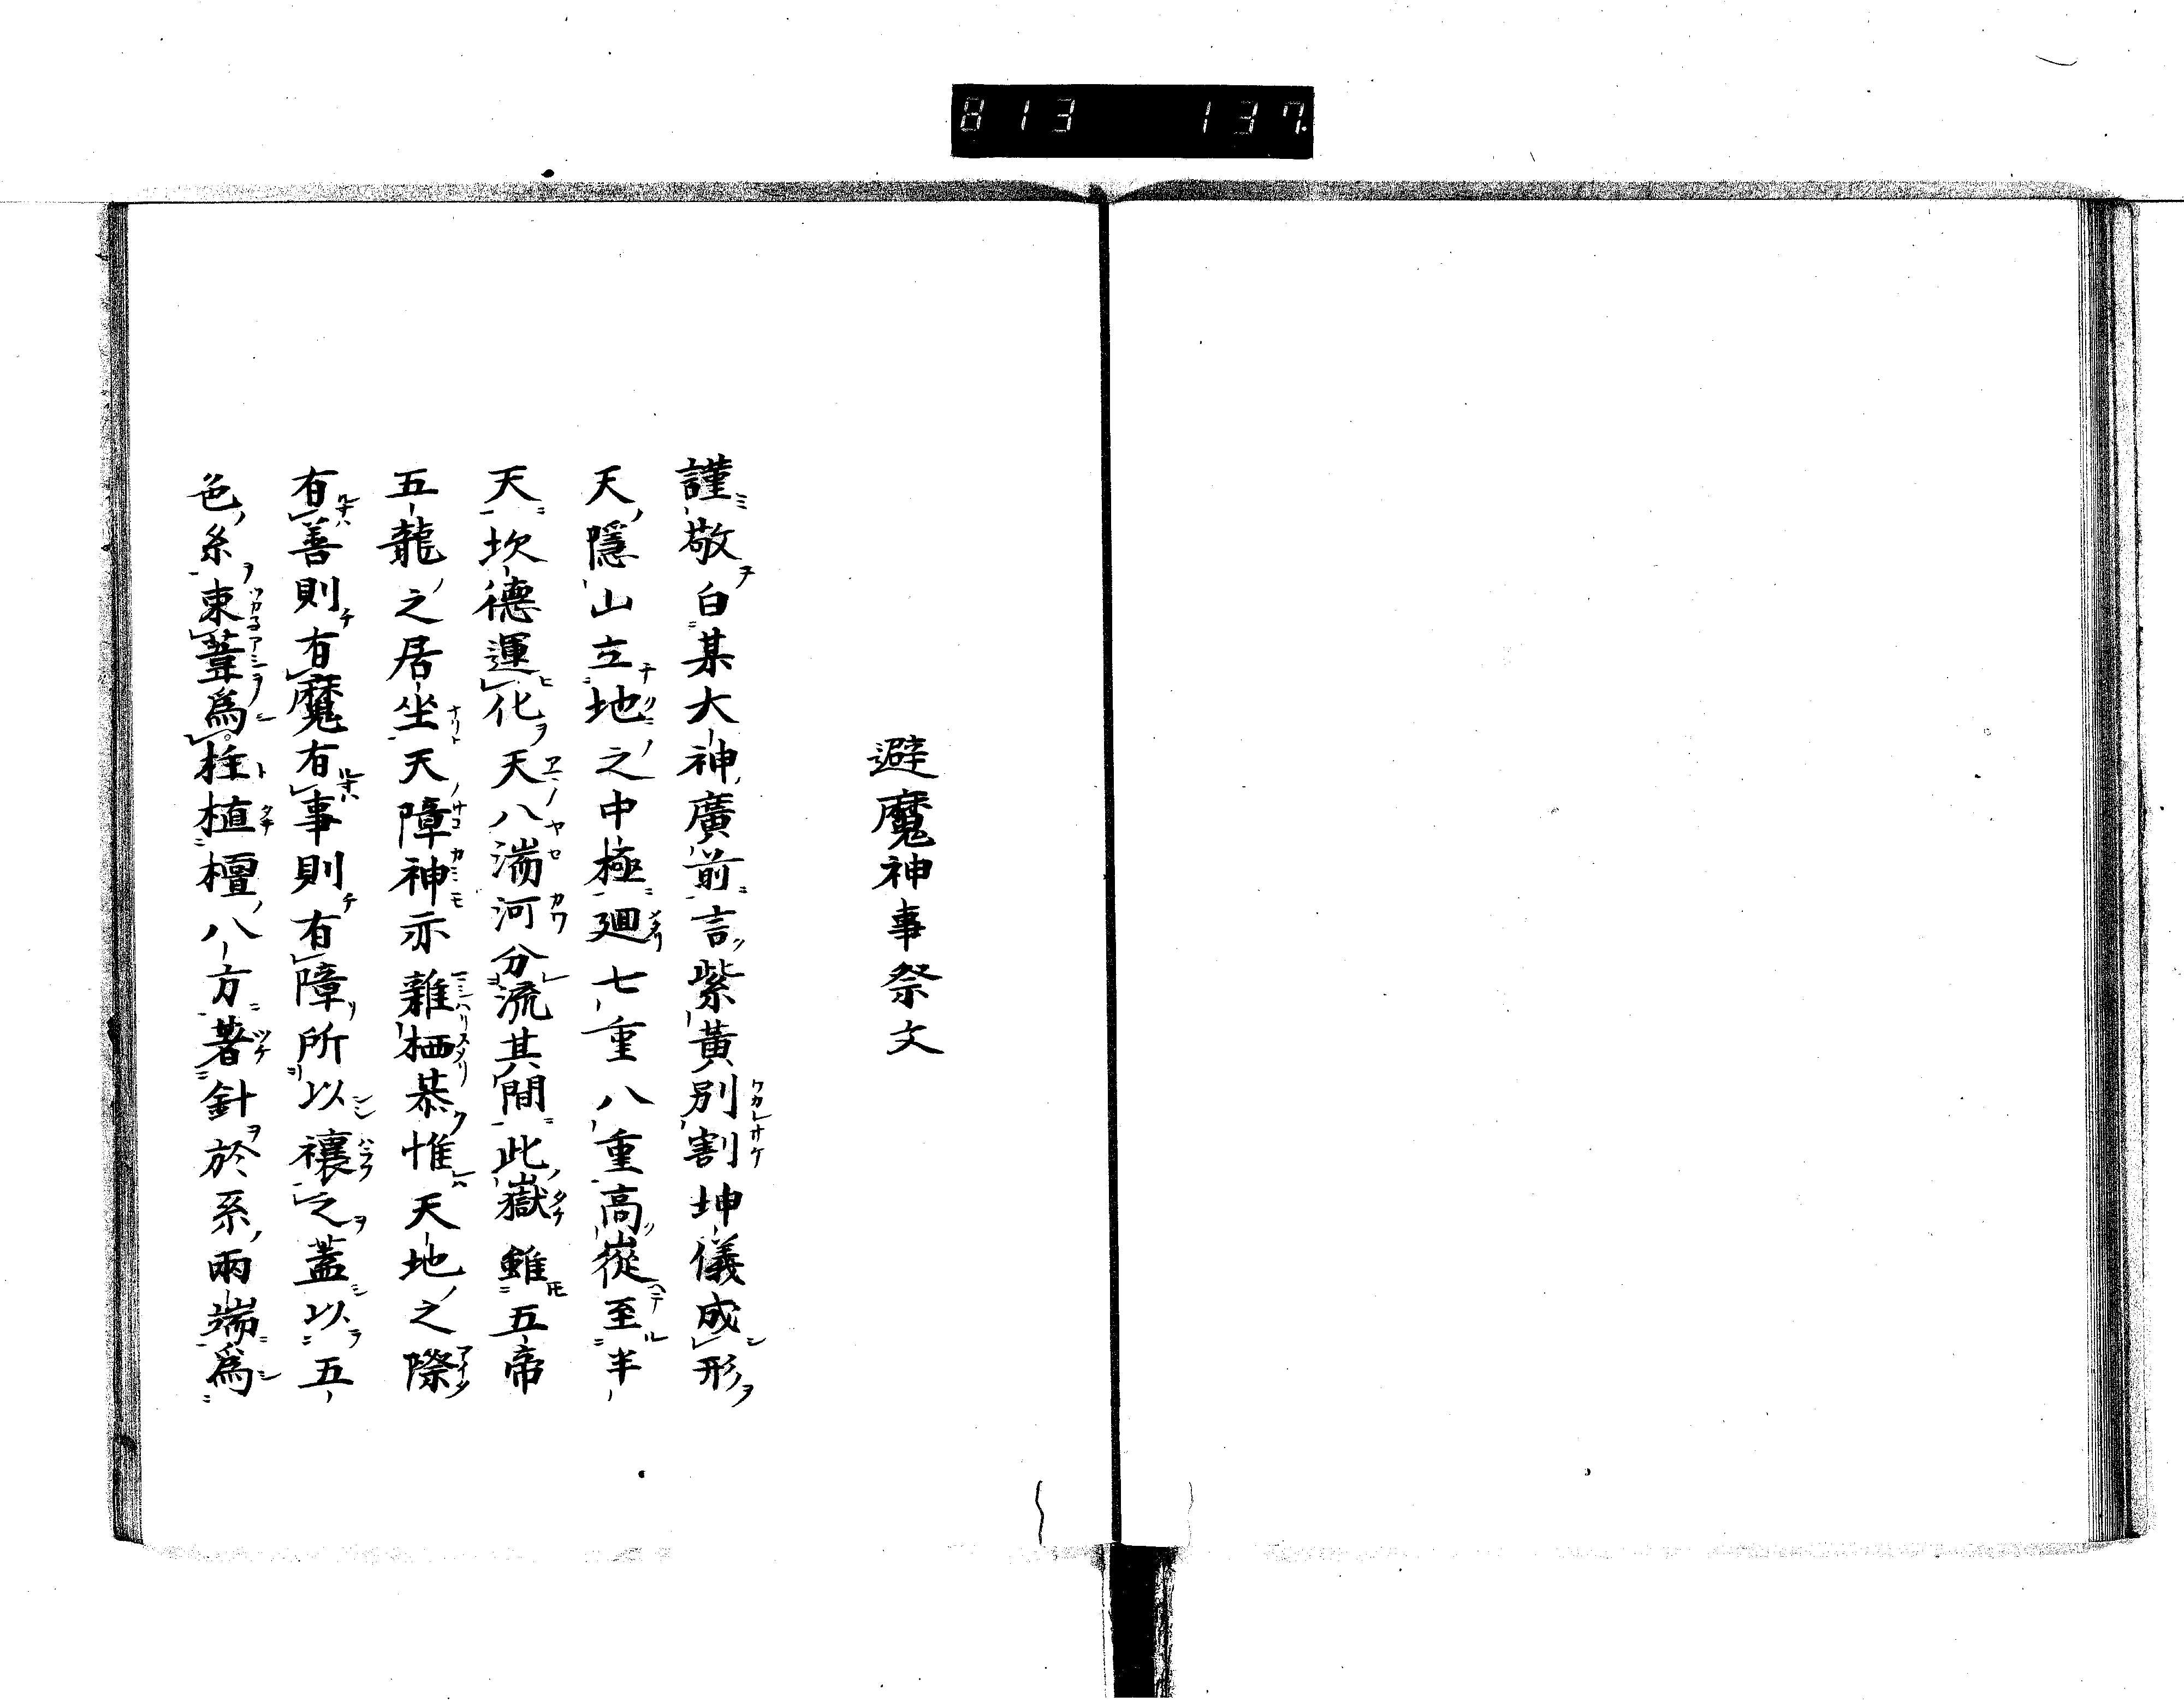 813 137.
避魔神事祭文
謹敬白某大神廣前言紫黃別割坤儀成形
天隱山立地之中極廻七重八重高從至半
天坎德運化天八湍河分流其間此嶽雖五帝
五龍之居坐天障神亦雜栖恭惟天地之際
有善則有魔有事則有障所以禳之蓋以五
色糸束葦為柱植檀八方著針於系兩端為